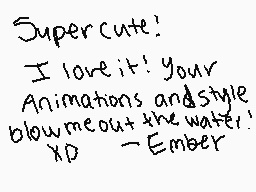 Super cute!
I love it! Your
Animations and style
blow me out the water!
XD - Ember